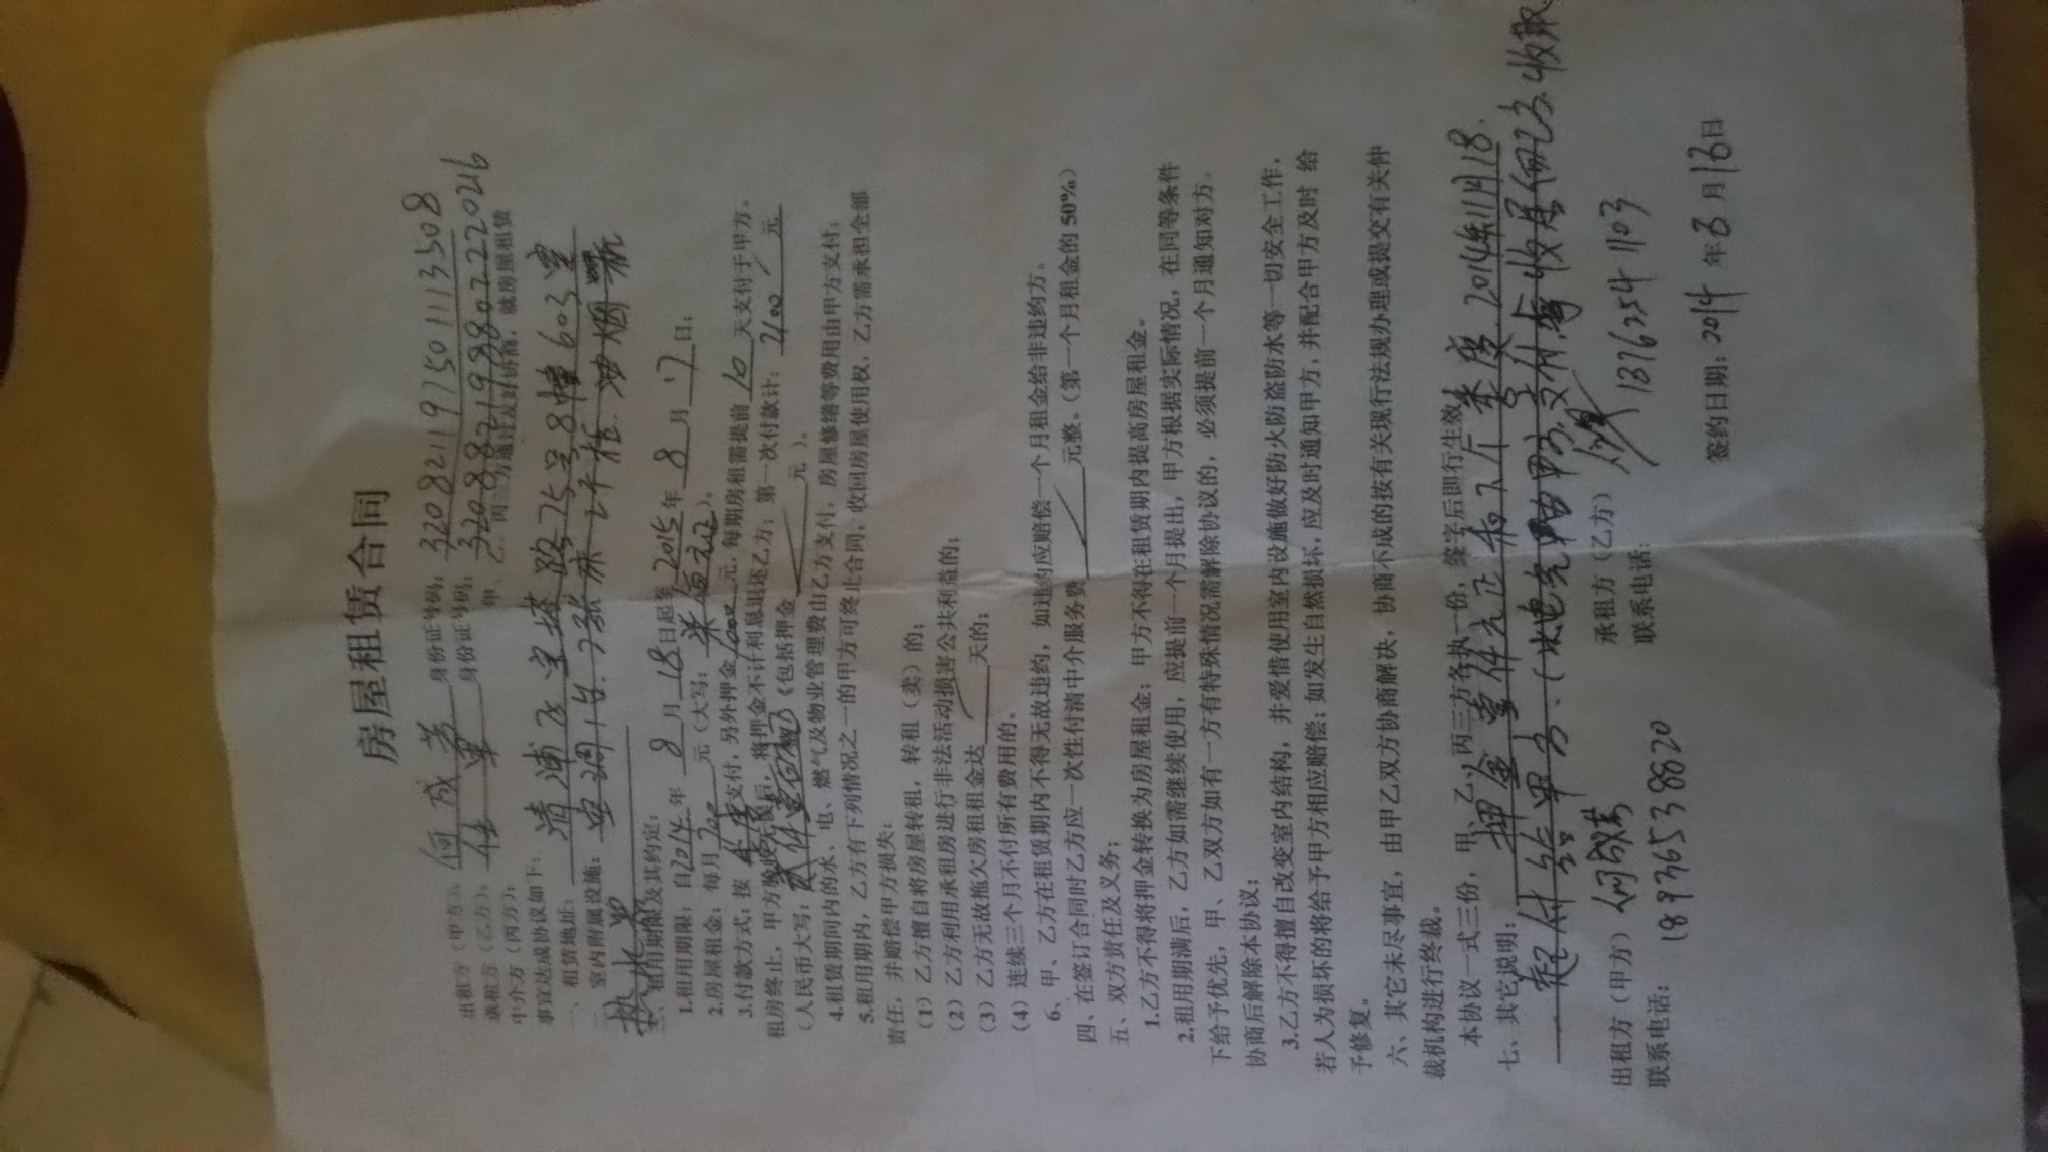 房屋租赁合同
出租方（甲方）：何成 身份证号码：320821197501113508
承租方（乙方）： 身份证号码：320882198802220216
中介方（丙方）： 甲、乙、丙三方通过友好协商，就房屋租赁
事宜达成协议如下：
一、租赁地址：清浦区 路75号8幢603室
二、室内附属设施： 2张床 油烟机
热水器
三、租用期限及其约定：
1.租用期限：自2014年8月18日起至2015年8月17日；
2.房屋租金：每月700元（大写：柒佰元正）。
3.付款方式：按季度支付，另外押金1000元，每期房租需提前10天支付于甲方。
租房终止，甲方验收无误后，将押金不计利息退还乙方；第一次付款计：2100元
（人民币大写：贰仟壹佰 （包括押金 元）。
4.租赁期间内的水、电、燃气及物业管理费由乙方支付，房屋修缮等费用由甲方支付；
5.租用期内，乙方有下列情况之一的甲方可终止合同，收回房屋使用权，乙方需承担全部
责任，并赔偿甲方损失：
（1）乙方擅自将房屋转租，转租（卖）的；
（2）乙方利用承租房进行非法活动损害公共利益的；
（3）乙方无故拖欠房租租金达 天的；
（4）连续三个月不付所有费用的。
6、甲、乙方在租赁期内不得无故违约，如违约应赔偿一个月租金给非违约方。
四、在签订合同时乙方应一次性付清中介服务费 元整。（第一个月租金的50%）
五、双方责任及义务；
1.乙方不得将押金转换为房屋租金；甲方不得在租赁期内提高房屋租金。
2.租用期满后，乙方如需继续使用，应提前一个月提出，甲方根据实际情况，在同等条件
下给予优先，甲、乙双方如有一方有特殊情况需解除协议的，必须提前一个月通知对方，
协商后解除本协议；
3.乙方不得擅自改变室内结构，并爱惜使用室内设施做好防火防盗防水等一切安全工作，
若人为损坏的将给予甲方相应赔偿；如发生自然损坏，应及时通知甲方，并配合甲方及时 给
予修复。
六、其它未尽事宜， 由甲乙双方协商解决，协商不成的按有关现行法规办理或提交有关仲
裁机构进行终裁。
本协议一式三份， 甲、乙、丙三方各执一份，签字后即行生效。
七、其它说明：押金壹仟元正 和下个季度2014年11月18.
付给甲方.
出租方（甲方） 承租方（乙方）
联系电话：18936538820 联系电话：13762541103
签约日期：2014年8月13日